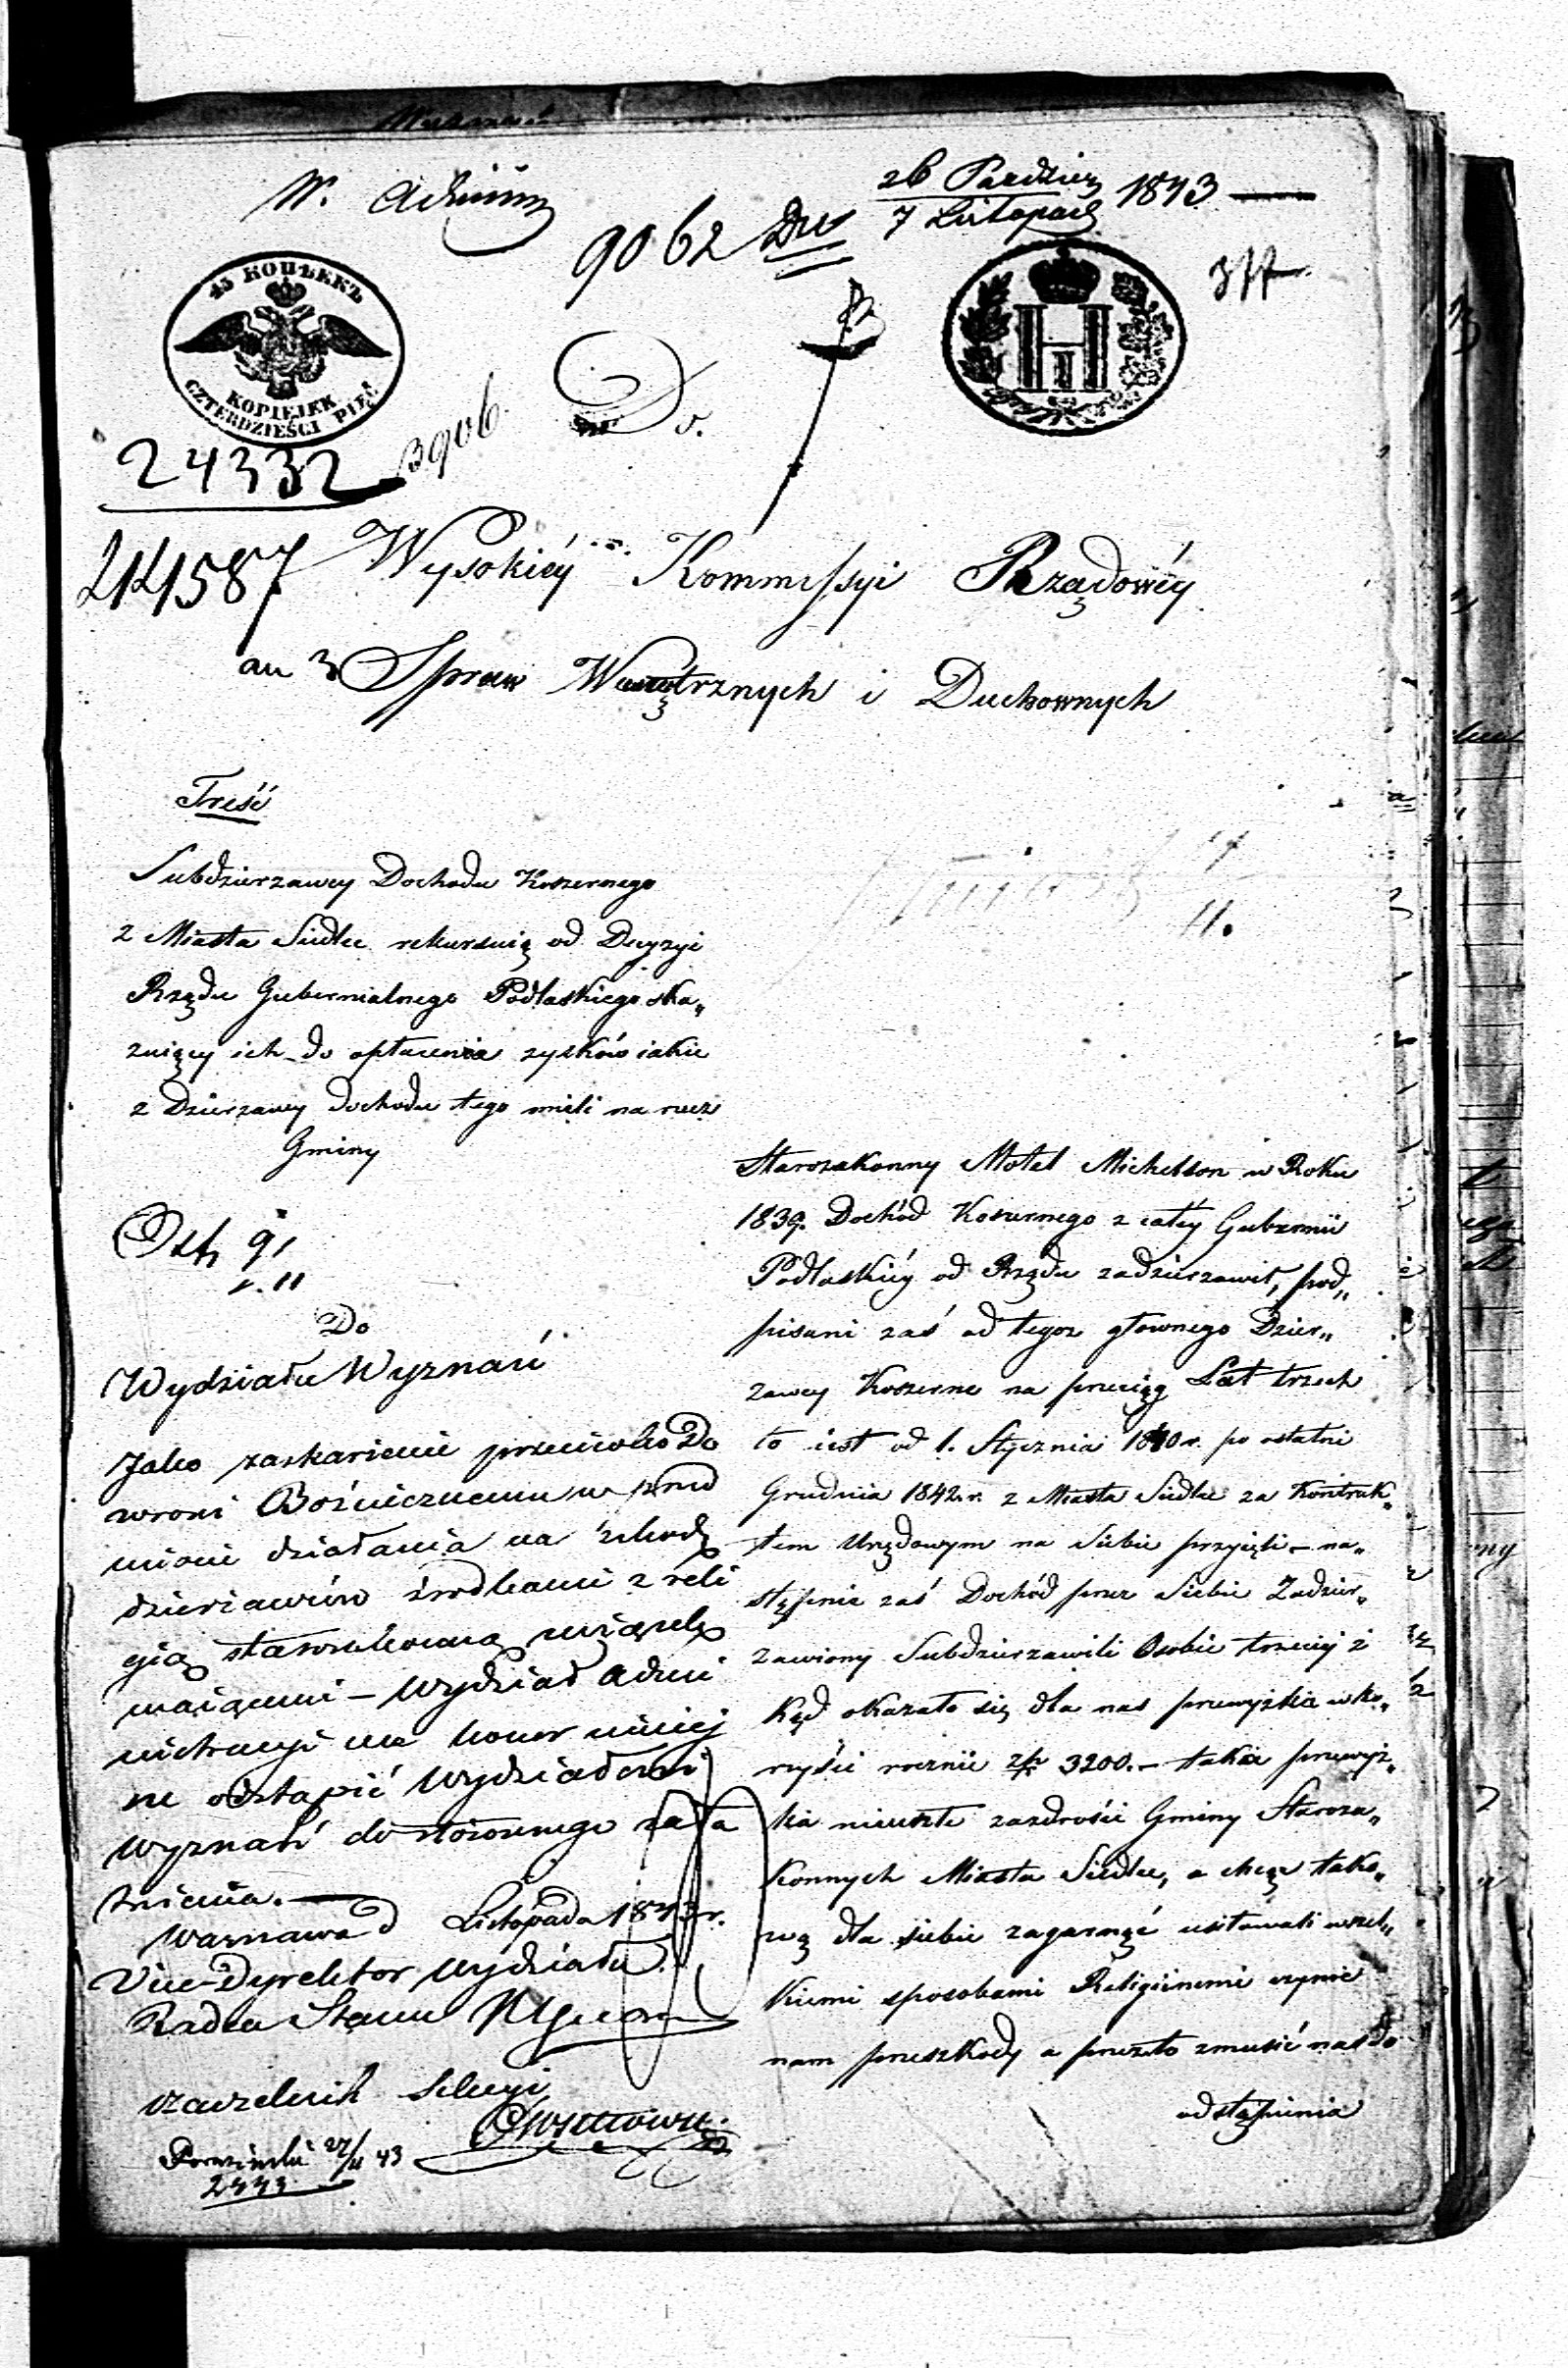 W. Admin
26 Paździer
7 Listopad 1843
9062
45 КОПѢЕКЪ
KOPIEIEK
CZTERDZIEŚCI PIĘĆ
24332
3906
Do.
Wysokiéy Kommissyi Rządowéy
Spraw Wewnętrznych i Duchownych
Treść
Subdzierzawcy Dochodu Koszernego
z Miasta Siedlec rekursuią od Decyzyi
Rządu Gubernialnego Podlaskiego ska„
zuiącey ich do opłacenia zysków iakie
z Dzierzawy dochodu tego mieli na rzecz
Gminy
Do
Wydziału Wyznań
Jako zaskarżenie przeciwko Do
zorowi Bóżniczemu w przed
miocie działania na szkodę
dzierżawców środkami z reli
gią starozakonną związek
maiącemi – Wydział Admi
nistracyi ma honor niniej
sze odstąpić Wydziałowi
Wyznań do stosownego zała
twienia. —
Warszawa d Listopada 1843 r.
Vice-Dyrektor Wydziału
Radca Stanu
Naczelnik Sekcyi
27/11 43
2443
Starozakonny Motel Michelson w Roku
1839. Dochód Koszernego z całey Gubernii
Podlaskiéy od Rządu zadzierzawił, pod„
pisani zaś od tegoz głownego Dzier„
zawcy Koszerne na przeciąg Lat trzech
to iest od 1. Stycznia 1840 r. po ostatni
Grudnia 1842. r. z Miasta Siedlec za Kontrak„
tem Urzędowym na Siebie przyięli – na„
stępnie zaś Dochód przez Siebie Zadzier„
zawiony Subdzierzawili Osobie trzeciéy z
kąd okazało się dla nas przewyżka w ko„
rzyści rocznie złp 3200. – takia przewyż„
ka nieuszła zazdrości Gminy Staroza„
konnych Miasta Siedlec, a chcąc tako„
wą dla siebie zagarnąć usiłowali wszel„
kiemi sposobami Religiinemi czynić
nam przeszkody a przezto zmusić nas do
odstąpienia